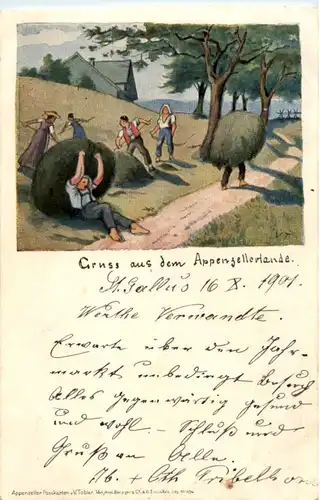 Gruss aus dem Appenzellerlande.
St. Gallus 16 X. 1901.
Werthe Verwandte.
Erwarte über den Jahr-
markt unbedingt Besuch
Alles gegenwärtig gesund
und wohl - Schluß und
Gruß an Alle.
+ Oth
Appenzeller Postkarten v. V. Tobler